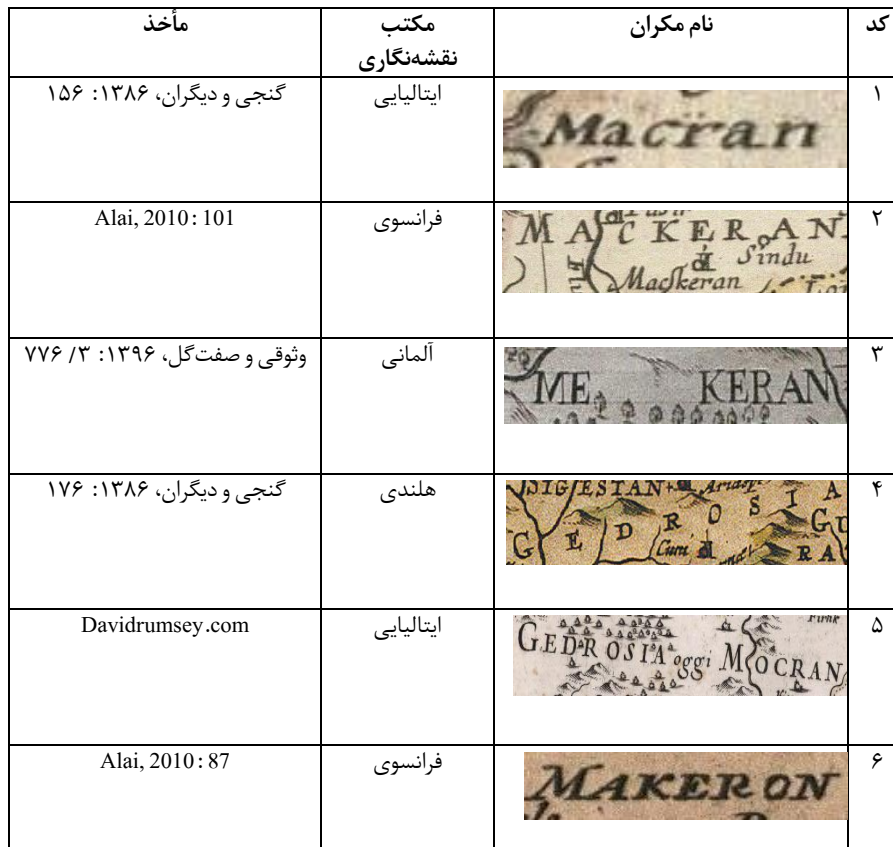 کد نام مکران مکتب نقشه‌نگاری مأخذ
۱ Macran ایتالیایی گنجی و دیگران، ۱۳۸۶: ۱۵۶
۲ MACKERAN فرانسوی Alai, 2010: 101
Sindu
Macſkeran
۳ ME KERAN آلمانی وثوقی و صفت‌گل، ۱۳۹۶: ۳/ ۷۷۶
۴ SIGESTAN هلندی گنجی و دیگران، ۱۳۸۶: ۱۷۶
GEDROSIA
۵ GEDROSIA oggi MOCRAN ایتالیایی Davidrumsey.com
۶ MAKERON فرانسوی Alai, 2010: 87